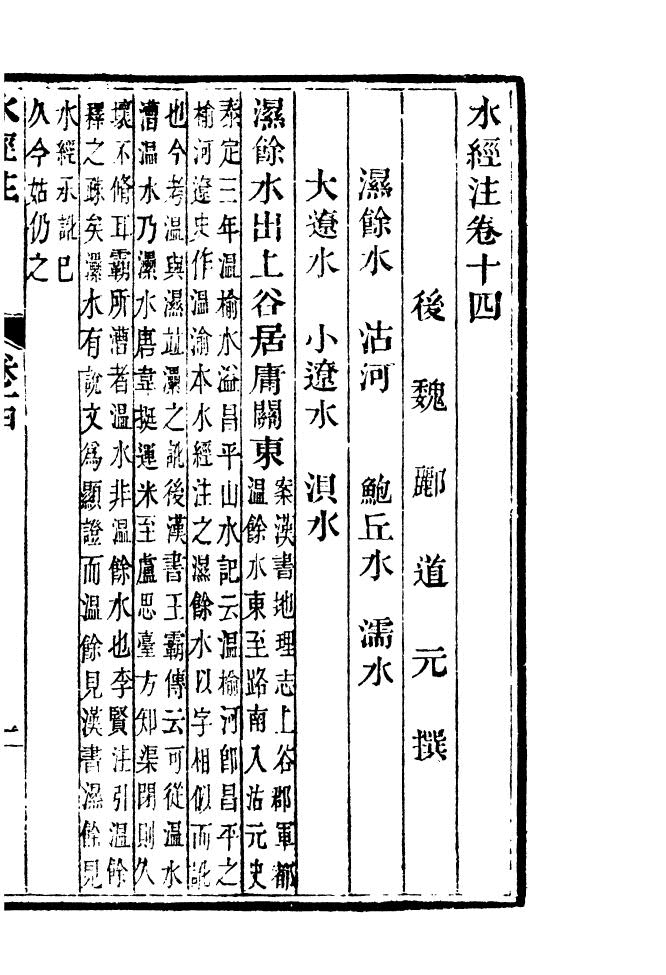 水經注卷十四
後魏酈道元撰
濕餘水 沽河 鮑丘水 濡水
大遼水 小遼水 浿水
濕餘水出上谷居庸關東
案漢書地理志上谷郡軍都
溫餘水東至路南入沽元史
泰定三年溫榆水溢昌平山水記云溫榆河卽昌平之
榆河遼史作溫渝本水經注之濕餘水以字相似而訛
也今考溫與濕竝㶟之訛後漢書王霸傳云可從溫水
漕溫水乃㶟水唐韋挺運米至盧思臺方知渠閉則久
壞不修耳霸所漕者溫水非溫餘水也李賢注引溫餘
釋之疎矣㶟水有說文爲顯證而溫餘見漢書濕餘見
水經承訛已
久今姑仍之
水經注 卷十四 一